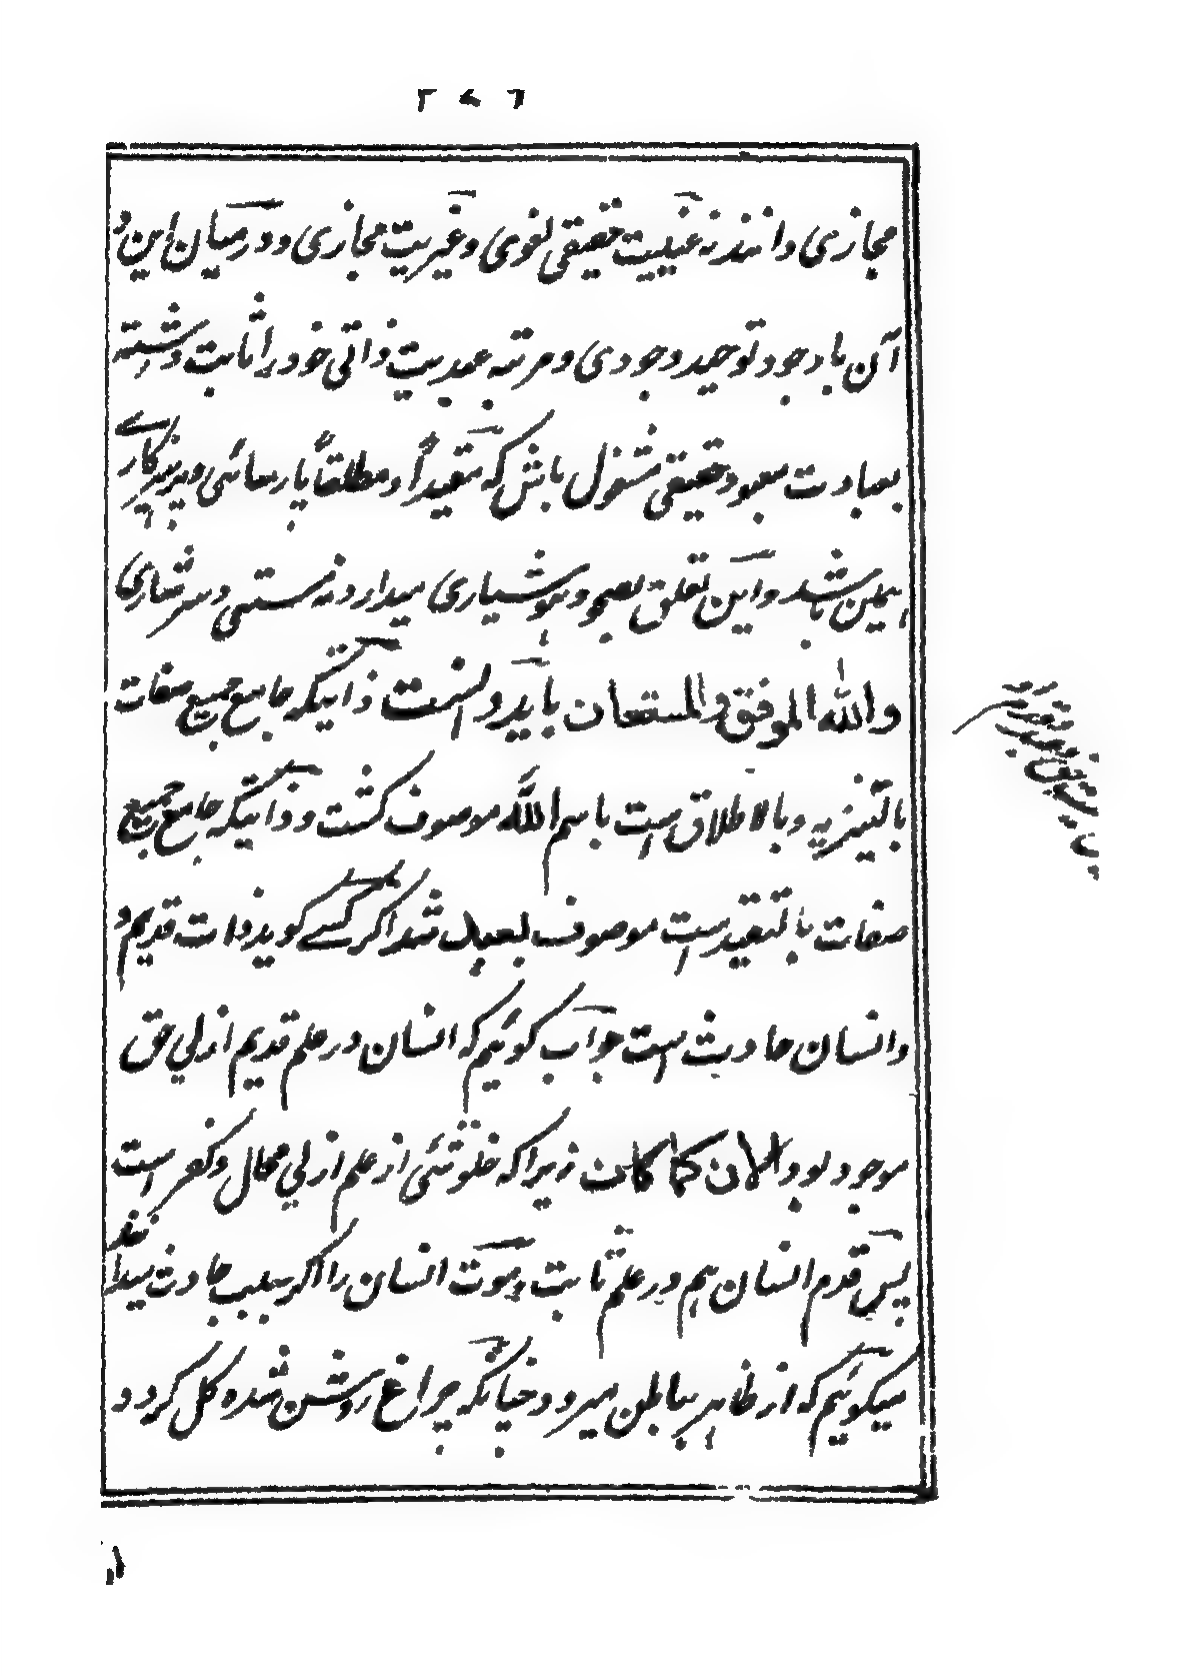 ۲۷۶
مجازی دانند نه عینیت حقیقی لغوی و غیریت مجازی و در میان این و
آن با وجود توحید وجودی و مرتبه عبدیت ذاتی خود را ثابت داشته
بعبادت معبود حقیقی مشغول باش که مقیداً و مطلقاً پارسائی و پرهیزگاری
همین باشد و این تعلق بصحو و هوشیاری میدارد نه مستی و سرشاری
والله الموفق والمستعان باید دانست ذاتیکه جامع جمیع صفات
بالتنزیه و بالاطلاق است باسم الله موصوف گشت و ذاتیکه جامع جمیع
صفات بالتقید است موصوف بعبد شد اگر کسے گوید ذات قدیم و
وانسان حادث است جواب گوئیم که انسان در علم قدیم ازلی حق
موجود بود الان کما کان زیرا که خلو شئی از علم ازلی محال و کفر است
پس قدم انسان هم در علم ثابت و موت انسان را اگر سبب حادث میدانند
میگوئیم که از ظاهر بباطن میرود چنانکه چراغ روشن شده گل کرد و